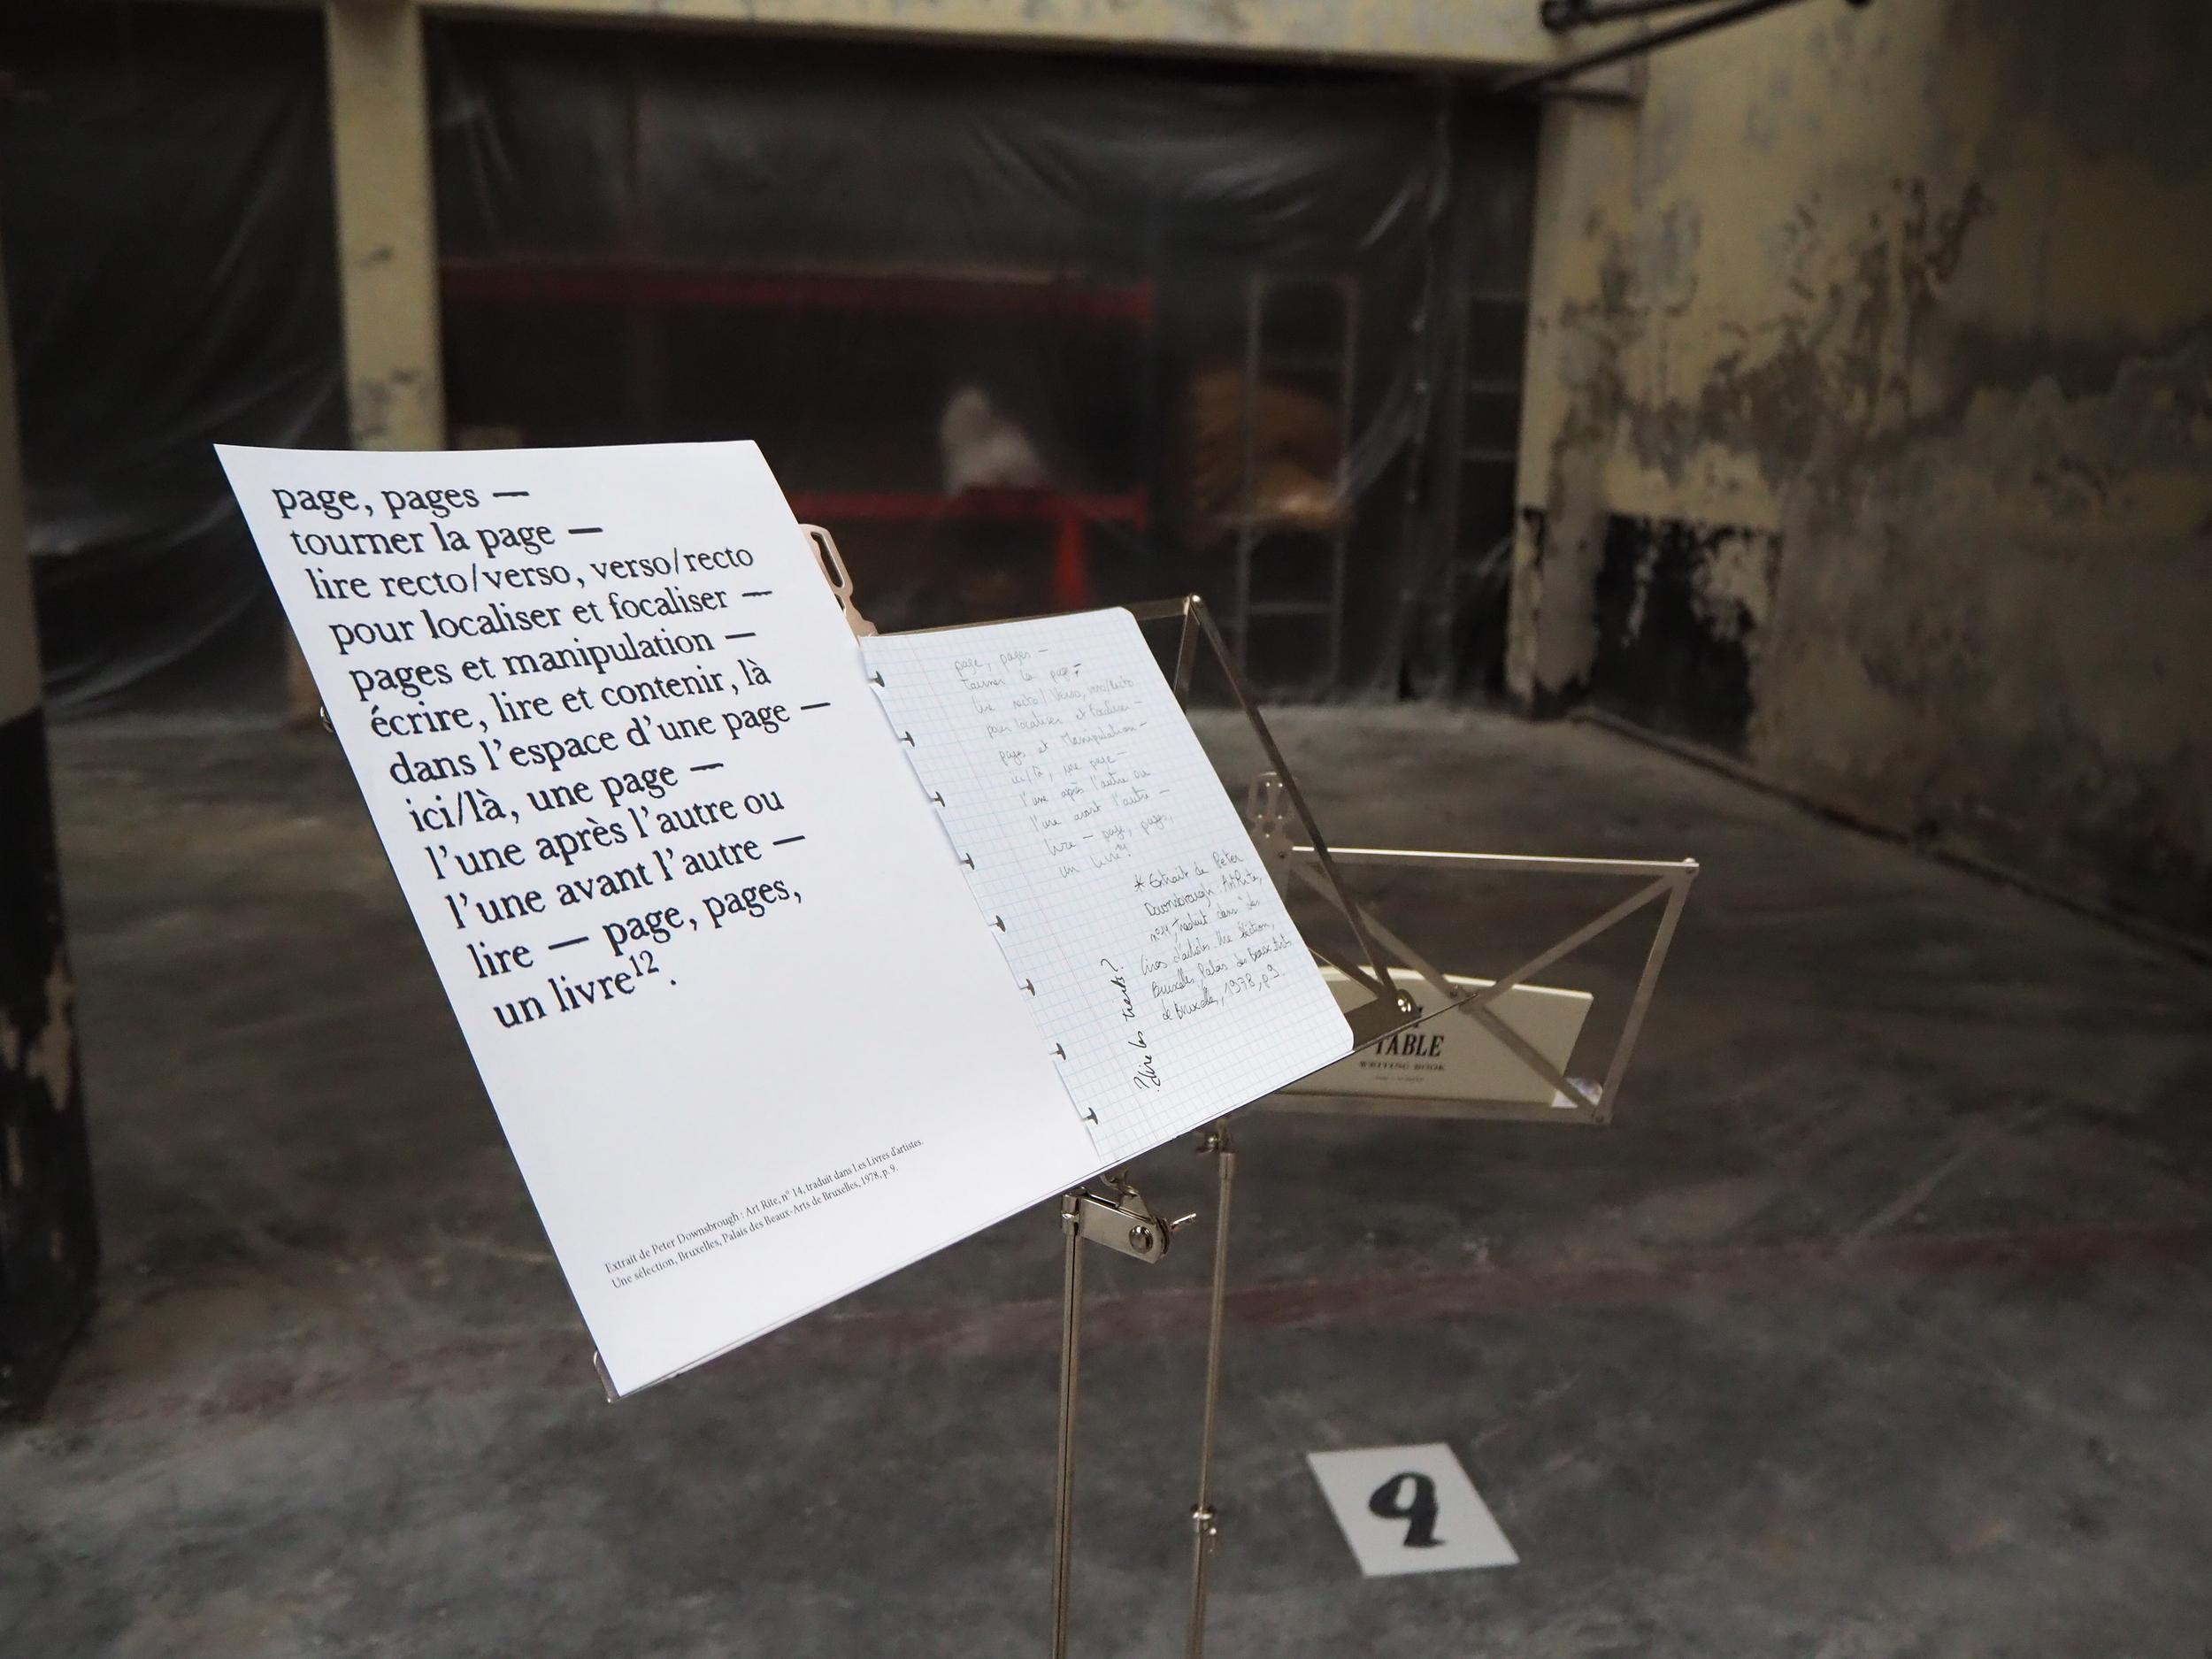 page, pages —
tourner la page —
lire recto/verso, verso/recto
pour localiser et focaliser —
pages et manipulation —
écrire, lire et contenir, là
dans l'espace d'une page —
ici/là, une page —
l'une après l'autre ou
l'une avant l'autre —
lire — page, pages,
un livre12.
Extrait de Peter Downsbrough : Art Rite, n° 14, traduit dans Les Livres d'artistes.
Une sélection, Bruxelles, Palais des Beaux-Arts de Bruxelles, 1978, p. 9.
page, pages —
tourner la page —
lire recto/verso, verso/recto
pour localiser et focaliser —
pages et Manipulation —
ici/là, une page —
l'une après l'autre ou
l'une avant l'autre —
lire — page, pages,
un livre
* Extrait de Peter
Downsbrough : Art Rite,
n°14, traduit dans Les
livres d'artistes. Une sélection,
Bruxelles, Palais des Beaux Arts
de Bruxelles, 1978, p.9.
?dire les tirets?
TABLE
WRITING BOOK
9